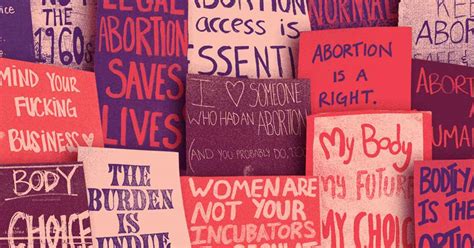 No
to the
1960s
LEGAL
ABORTION
SAVES
LIVES
ABORTION
access is
ESSENTI
NORMAL
KEEP
ABORTION
MIND YOUR
FUCKING
BUSINESS
I ♥ SOMEONE
WHO HAD AN
ABORTION
(AND YOU PROBABLY DO, TOO
ABORTION
IS A
RIGHT.
ABORTI
HUMA
BODY
CHOICE
THE
BURDEN
IS
UNDUE
WOMEN ARE
NOT YOUR
INCUBATORS
My Body
MY FUTURE
MY CHOICE
BODILY
IS